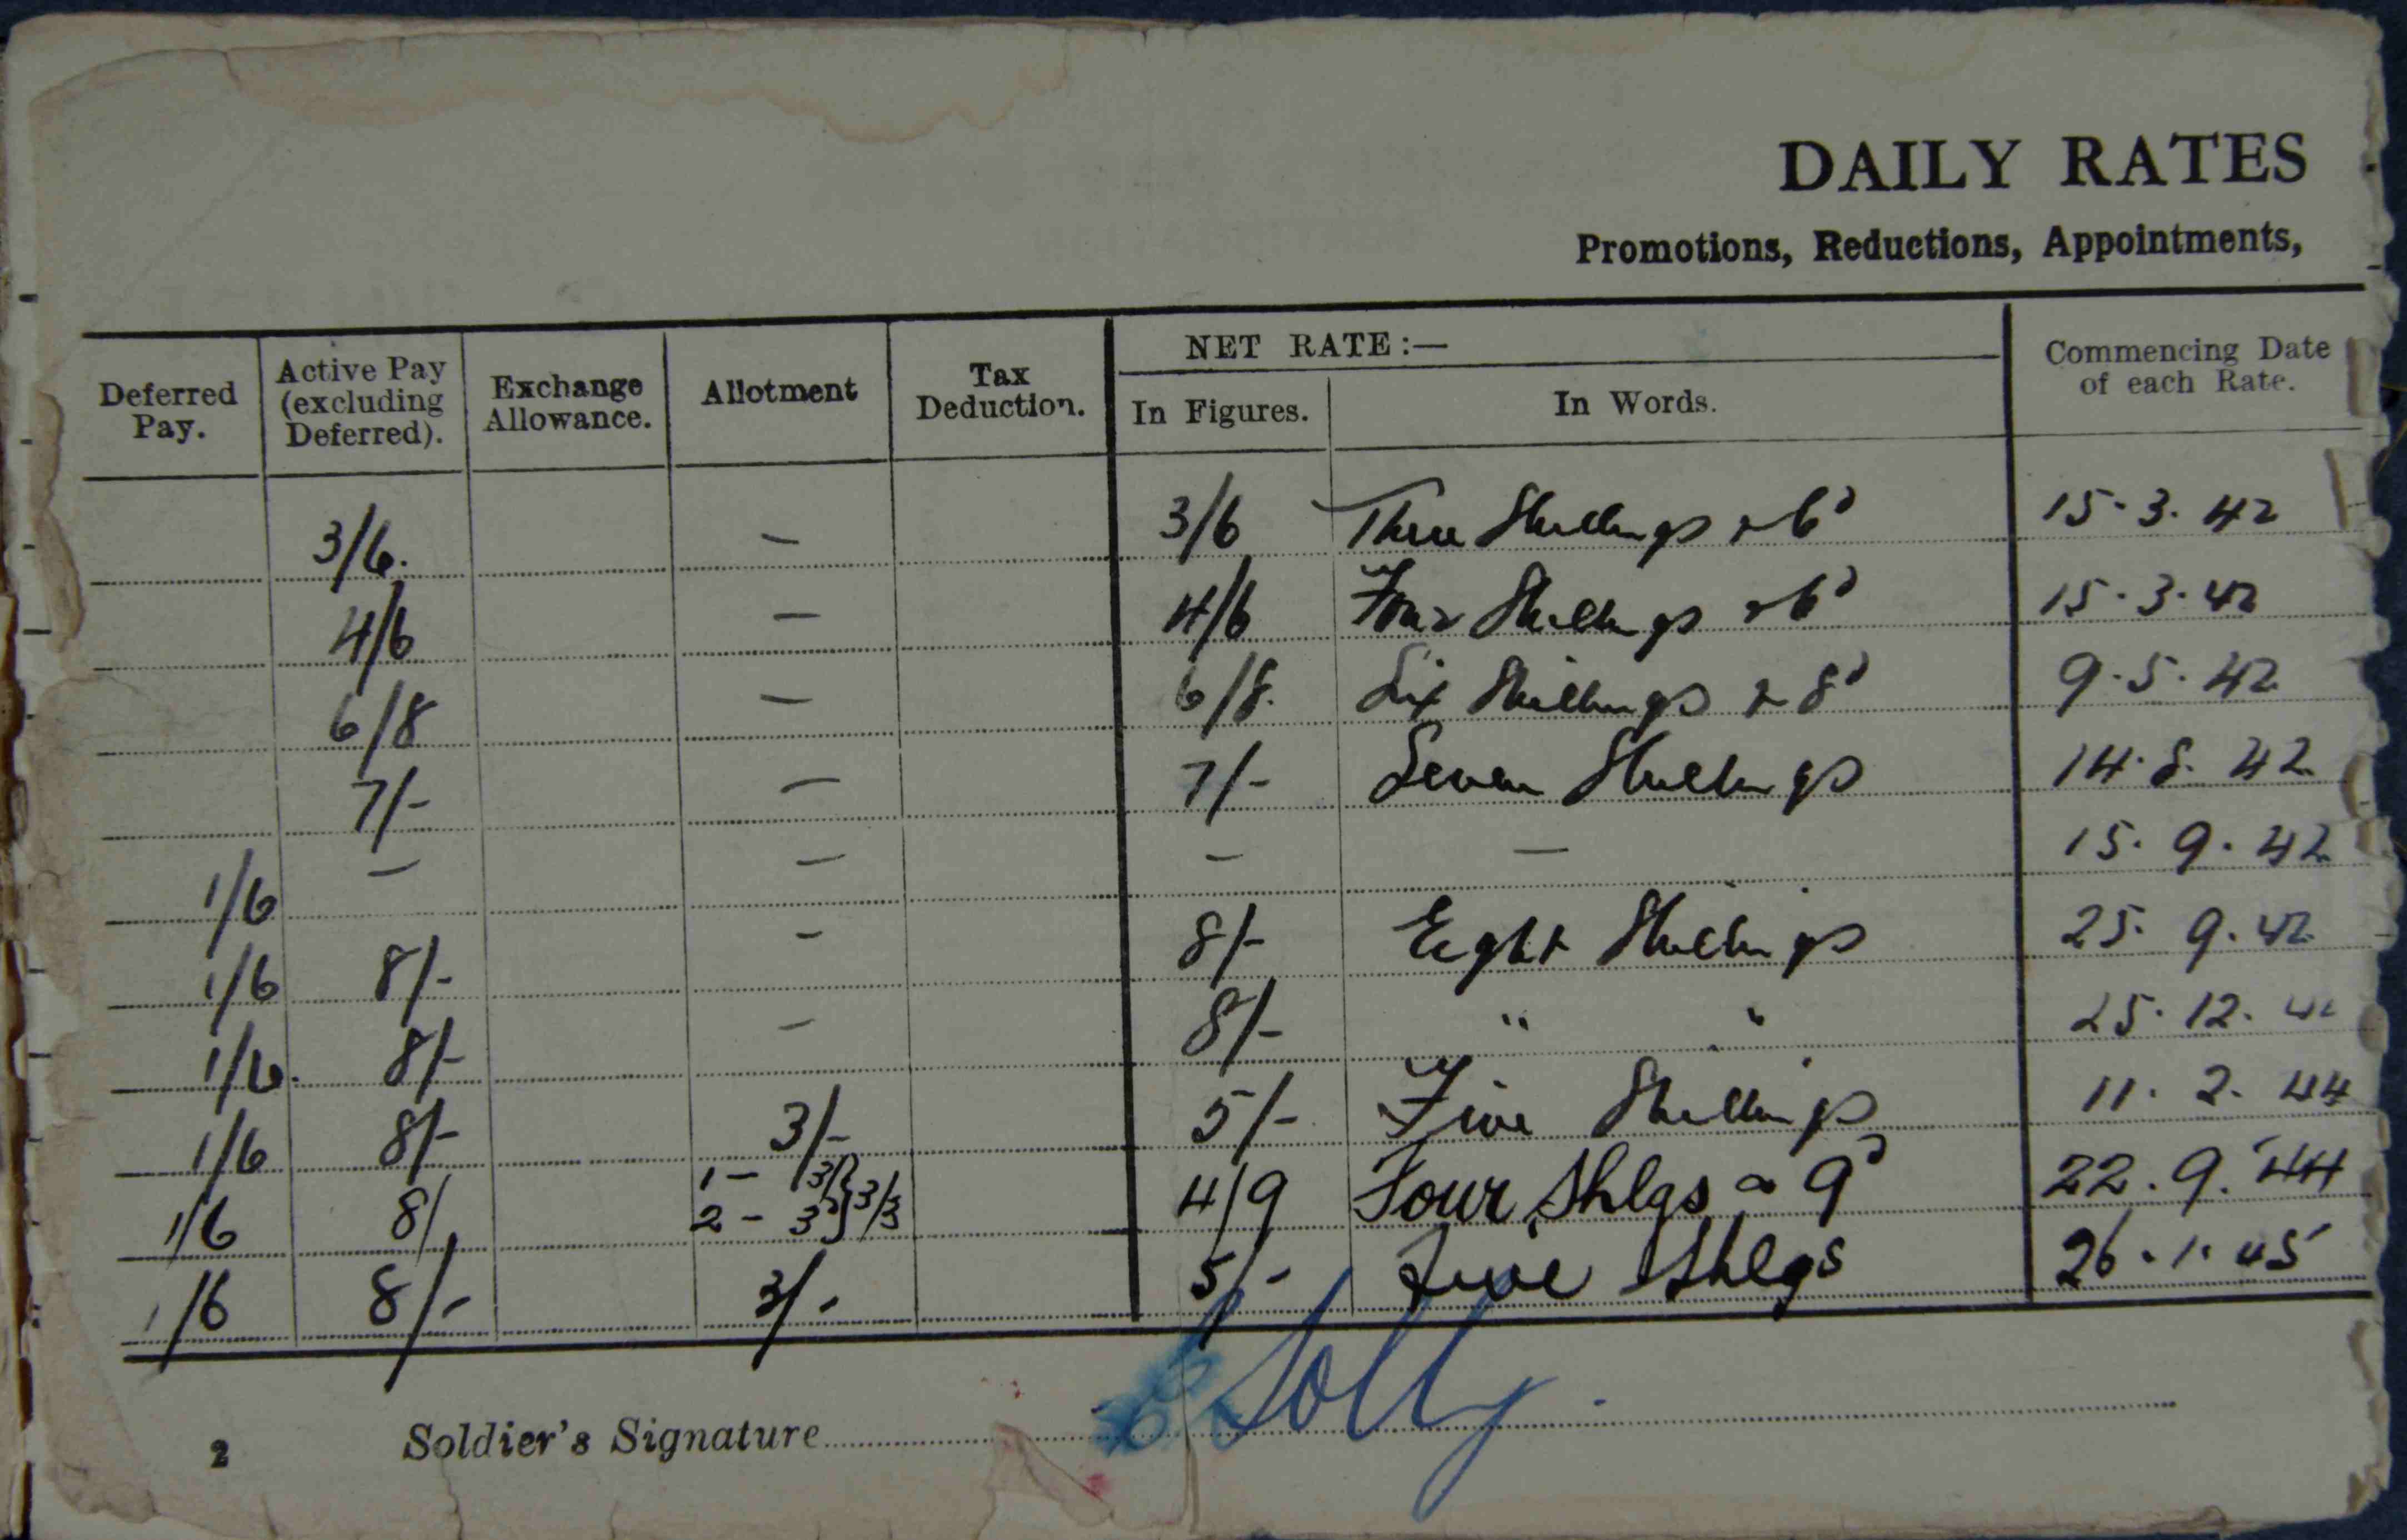 DAILY RATES
Promotions, Reductions, Appointments,
Deferred Pay. Active Pay (excluding Deferred). Exchange Allowance. Allotment Tax Deduction. NET RATE:— In Figures. In Words. Commencing Date of each Rate.
3/6. — 3/6 Three Shillings & 6d 15.3.42
4/6 — 4/6 Four Shillings & 6d 15.3.42
6/8 — 6/8. Six Shillings & 8d 9.5.42
7/- — 7/- Seven Shillings 14.8.42
1/6 — — — — 15.9.42
1/6 8/- — 8/- Eight Shillings 25.9.42
1/6. 8/- — 8/- " " 25.12.42
1/6 8/- 3/- 5/- Five Shillings 11.2.44
1/6 8/ 1 - 3/ 2 - 3d } 3/3 4/9 Four Shlgs & 9d 22.9.44
1/6 8/- 3/- 5/- Five Shlgs 26.1.45
2 Soldier's Signature Solly